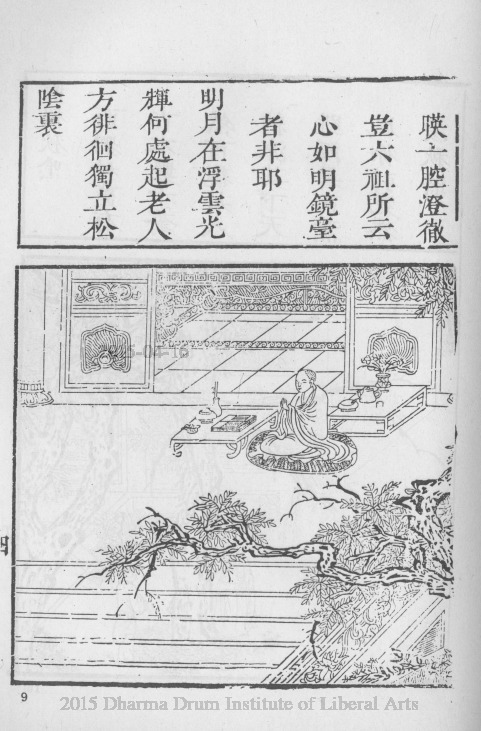 暎一腔澄徹
豈六祖所云
心如明鏡臺
者非耶
明月在浮雲光
輝何處起老人
方徘徊獨立松
陰裏
四
9
2015 Dharma Drum Institute of Liberal Arts